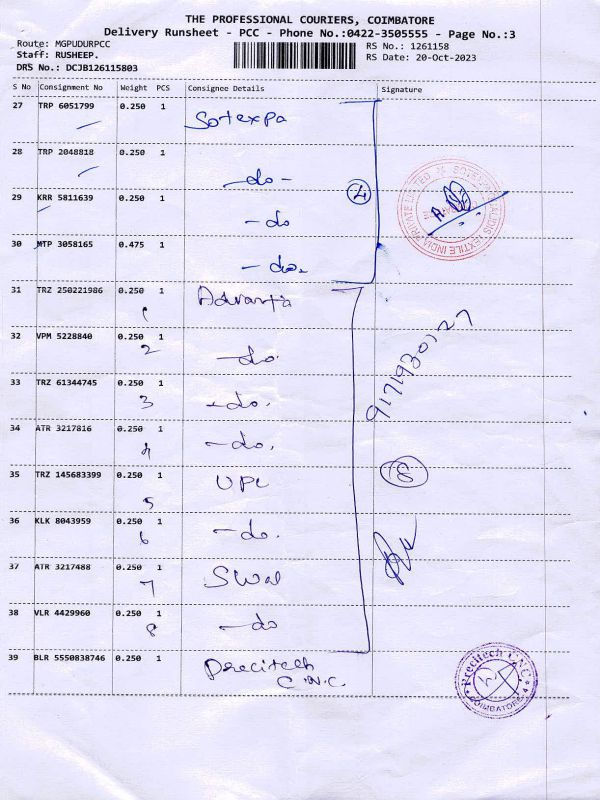 THE PROFESSIONAL COURIERS, COIMBATORE
Delivery Runsheet - PCC - Phone No.:0422-3505555 - Page No.:3
Route: MGPUDURPCC RS No.: 1261158
Staff: RUSHEEP. RS Date: 20-Oct-2023
DRS No.: DCJB126115803
S No Consignment No Weight PCS Consignee Details Signature
27 TRP 6051799 0.250 1 Sotexpa
28 TRP 2048818 0.250 1 -do-
29 KRR 5811639 0.250 1 -do
4
30 MTP 3058165 0.475 1 -do.
31 TRZ 250221986 0.250 1 Advanta
1
32 VPM 5228840 0.250 1 -do.
2
9171930127
33 TRZ 61344745 0.250 1 -do.
3
34 ATR 3217816 0.250 1 -do.
4
35 TRZ 145683399 0.250 1 UPL
8
5
36 KLK 8043959 0.250 1 -do.
6
37 ATR 3217488 0.250 1 Swal
7
38 VLR 4429960 0.250 1 -do
8
39 BLR 5550838746 0.250 1 Precitech
C.N.C.
Precitech C.N.C.
COIMBATORE-4